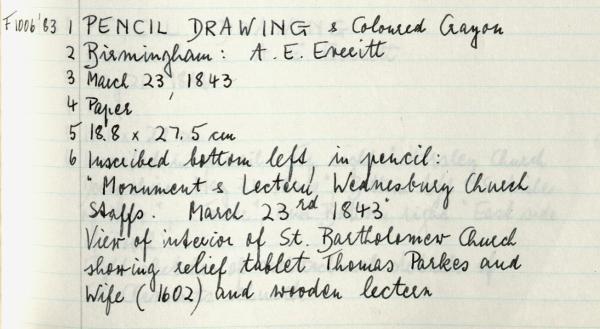 F1006'83 1 PENCIL DRAWING & Coloured Crayon
2 Birmingham: A. E. Everitt
3 March 23, 1843
4 Paper
5 18.8 x 27.5 cm
6 Inscribed bottom left, in pencil:
"Monument & Lectern, Wednesbury Church
Staffs. March 23rd 1843"
View of interior of St. Bartholomew Church
showing relief tablet Thomas Parkes and
Wife (1602) and wooden lectern